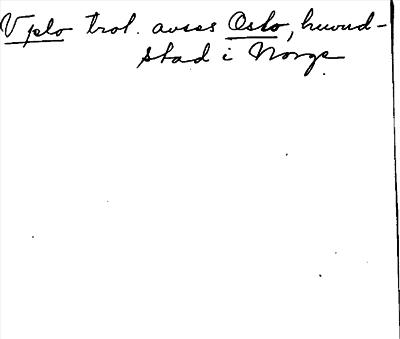 Vplo trol. avses Oslo, huvud-
stad i Norge